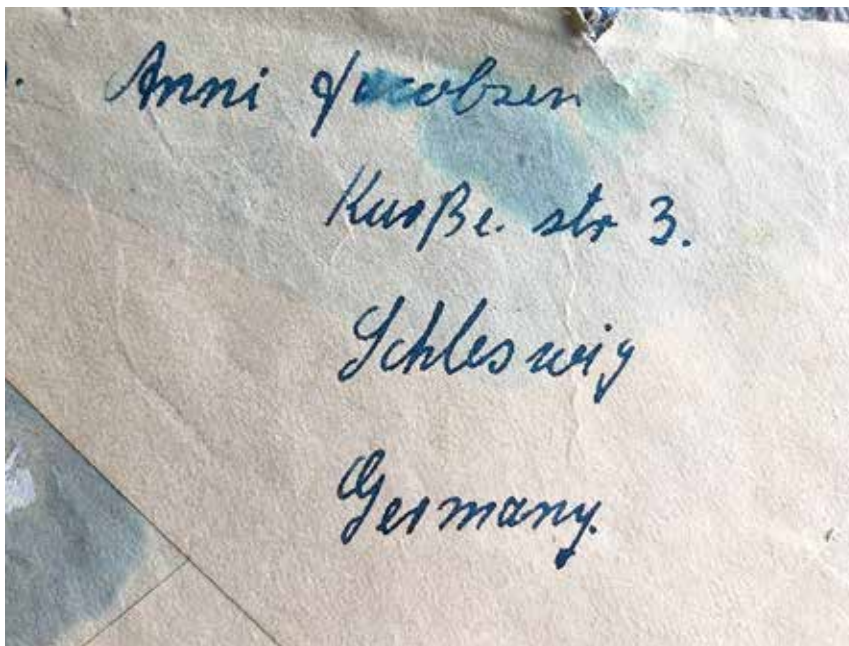 Anni Jacobsen
Kurße. str 3.
Schleswig
Germany.